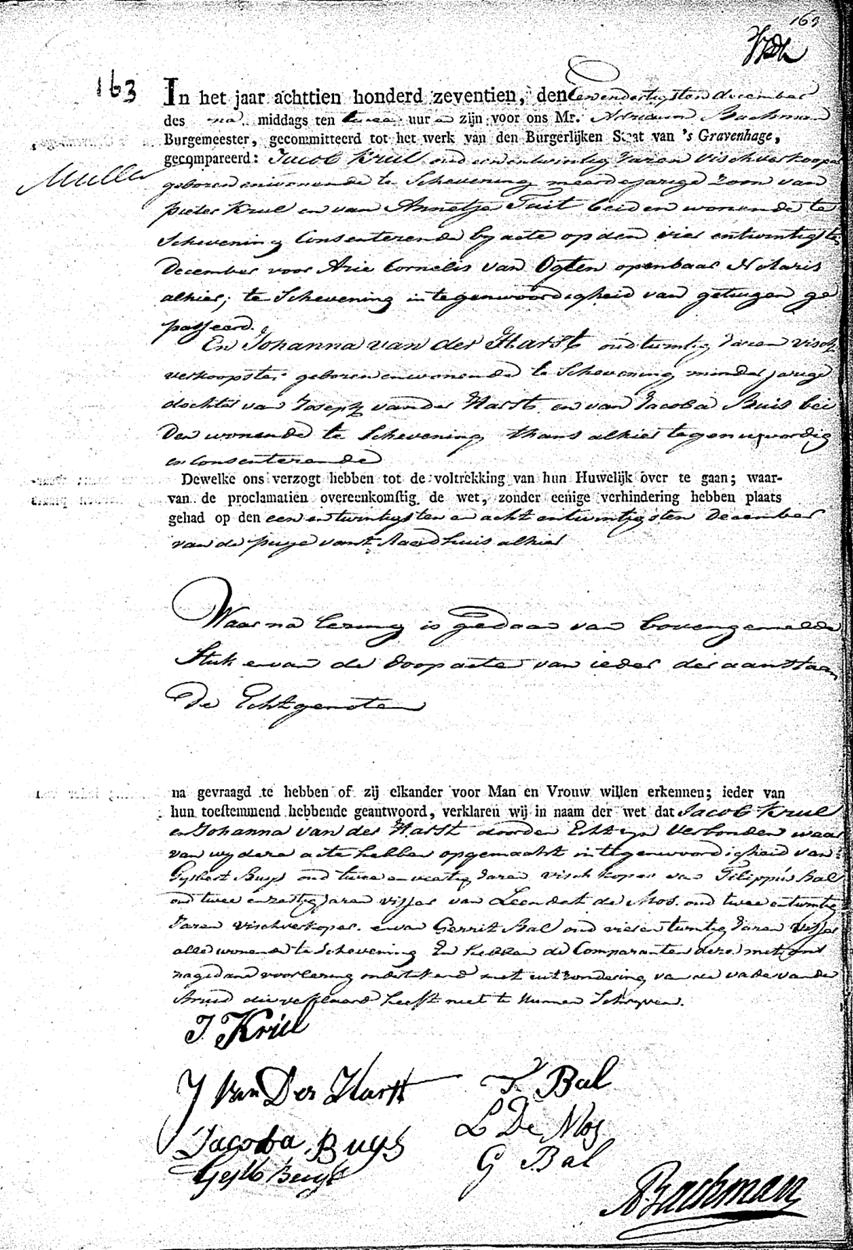 163
163
In het jaar achttien honderd zeventien, den een en dertigsten december
des na middags ten twee uuren zijn voor ons Mr. Adriaan Bachman
Burgemeester, gecommitteerd tot het werk van den Burgerlijken Staat van 's Gravenhage,
gecompareerd: Jacob Krul oud een entwintig Jaren vischverkooper
geboren en wonende te Schevening meerderjarige zoon van
Pieter Krul en van Annetje Tuit beiden wonende te
Schevening Consenterende by acte op den vier entwintigste
December voor Arie Cornelis van Ogten openbaar Notaris
alhier; te Schevening in tegenwoordigheid van getuigen ge
passeerd.
En Johanna van der Harst oud twintig Jaren visch
verkoopster geboren en wonende te Schevening minderjarige
dochter van Joseph van der Harst en van Jacoba Buis bei
den wonende te Schevening thans alhier tegenwoordig
en consenterende
Dewelke ons verzogt hebben tot de voltrekking van hun Huwelijk over te gaan; waar-
van de proclamatien overeenkomstig de wet, zonder eenige verhindering hebben plaats
gehad op den een en twintigsten en acht entwintigsten December
van de puye vant Raadhuis alhier
Waar na lezing is gedaan van bovengemelde
Stuk en van de doopacte van ieder der aanstaan
de Echtgenoten
na gevraagd te hebben of zij elkander voor Man en Vrouw willen erkennen; ieder van
hun toestemmend hebbende geantwoord, verklaren wij in naam der wet dat Jacob Krul
en Johanna van der Harst door den Echt zyn Verbonden waar
van wy deze acte hebben opgemaakt in tegenwoordigheid van
Gysbert Buys oud twee en veertig Jaren visch koper van Filippus Bal
oud twee en zestig Jaren visser van Leendert de Mos oud twee entwintig
Jaren vischverkoper en van Gerrit Bal oud vier en twintig Jaren visser
alle wonende te Schevening En hebben de Comparanten deze met ons
na gedane voorlezing ondertekend met uitzondering van de vader van de
Bruid die verklaard heeft niet te kunnen Schryven.
J Krul
J Van Der Harst
F Bal
Jacoba Buys
L De Mos
Gysb Buys
G Bal
A Bachman